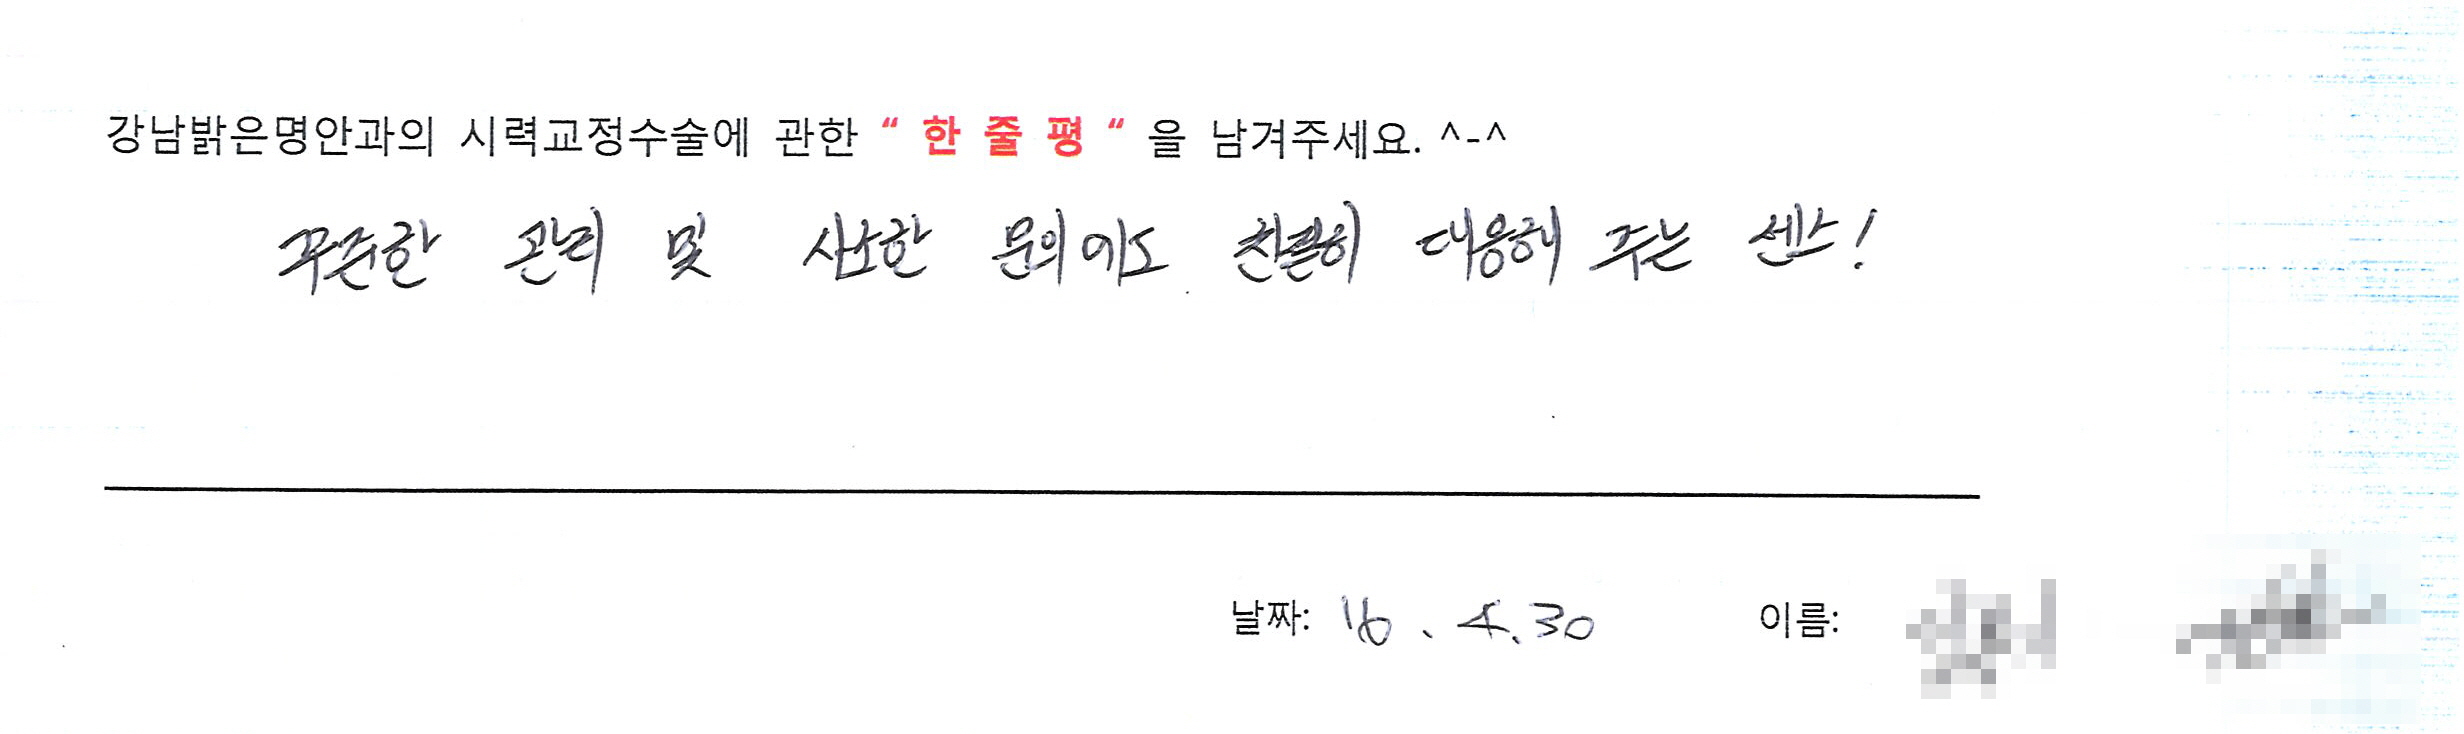 강남밝은명안과의 시력교정수술에 관한 “ 한 줄 평 “ 을 남겨주세요. ^-^
꾸준한 관리 및 사소한 문의에도 친절히 대응해 주는 센스!
날짜: 16. 4. 30 이름: